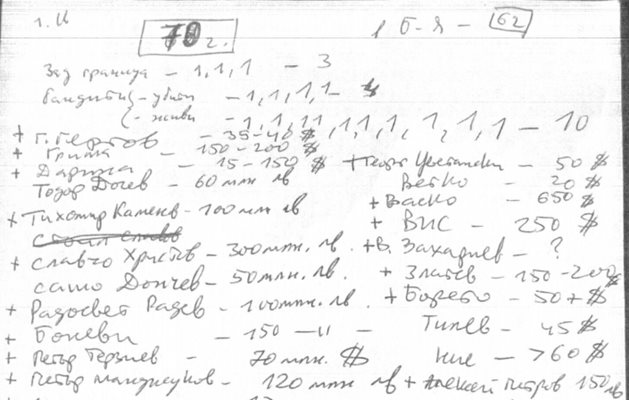 70 г.
1 Б-я - 62
Зад граница - 1,1,1 - 3
бандити - убити - 1,1,1,1 - 4
- живи - 1,1,11,1,1,1,1,1,1 - 10
+ Г. Гергов - 35-40 $
+ Гриша - 150-200 $
+ Дариша - 15-150 $
+ Георги Цветански - 50 $
Тодор Дочев - 60 млн лв
Ветко - 20 $
+ Васко - 650 $
+ Тихомир Каменов - 100 млн лв
+ ВИС - 250 $
+ Славчо Христов - 300 млн. лв.
+ В. Захариев - ?
Сашо Дончев - 50 млн. лв.
+ Златев - 150-200 $
+ Радосвет Радев - 100 млн. лв.
+ Борето - 50 + $
+ Боневи - 150 - 11 -
Тилев - 45 $
+ Петър Терзиев - 70 млн. $
Ние - 760 $
+ Петър Манджуков - 120 млн лв
+ Алексей Петров 150 лв